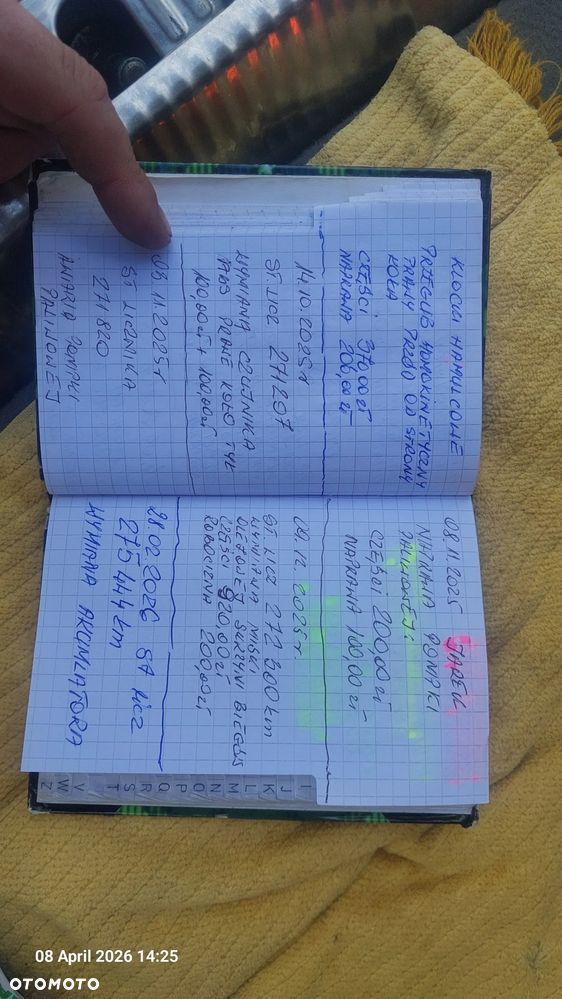 KLOCKI HAMULCOWE
PRZEGUB HOMOKINETYCZNY
PRAWY PRZÓD OD STRONY
KOŁA
CZĘŚCI 370,00 zł
NAPRAWA 200,00 zł
14.10.2025 r
ST. LICZ 271297
WYMIANA CZUJNIKA
ABS PRAWE KOŁO TYŁ
100,00 zł + 100,00 zł
08.11.2025 r
ST LICZNIKA
271820
AWARIA POMPKI
PALIWOWEJ
08.11.2025
WYMIANA POMPKI
PALIWOWEJ:
CZĘŚCI 200,00 zł
NAPRAWA 100,00 zł
09.12.2025 r
ST LICZ 272 300 km
WYMIANA MISKI
OLEJOWEJ SKRZYNI BIEGÓW
CZĘŚCI 920,00 zł
ROBOCIZNA 200,00 zł
28.02.2026 ST LICZ
275444 km
WYMIANA AKUMLATORA
I
J
K
L
M
N
O
P
Q
R
S
T
V
W
Z
08 April 2026 14:25
OTOMOTO